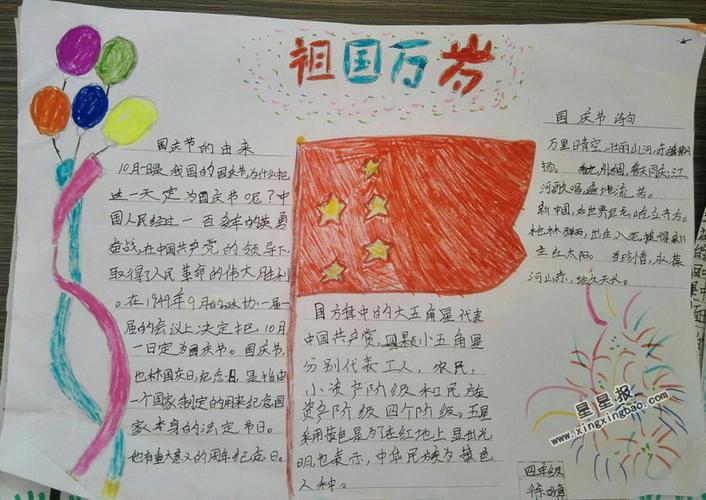 祖国万岁
国庆节的由来
10月一日是我国的国庆节,为什么把
这一天定为国庆节呢?中
国人民经过一百多年的英勇
奋战,在中国共产党的领导下,
取得了人民革命的伟大胜利
。在1949年9月的政协一届一
届的会议上决定把10月
1日定为国庆节。国庆节,
也称国庆日,纪念日,是指由
一个国家制定的用来纪念国
家本身的法定节日。
也有重大意义的周年纪念日。
国方旗中的大五角星代表
中国共产党,四颗小五角星
分别代表工人,农民,
小资产阶级和民族
资产阶级四个阶级。五星
采用黄色是为了在红地上显出光
明,也表示,中华民族为黄色
人种。
国庆节诗句
万里晴空,壮丽山河,赤
扬。普天同庆;江
河歌唱,遍地流芳。
新中国,如世界巨龙,屹立东方。
出生入死,
主红太阳。
河山赤,地久天长。
四年级
星星报
www.xingxingbao.com